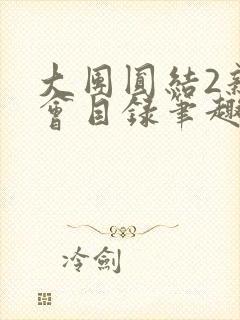 大團圓結2
會目錄筆趣
冷劍